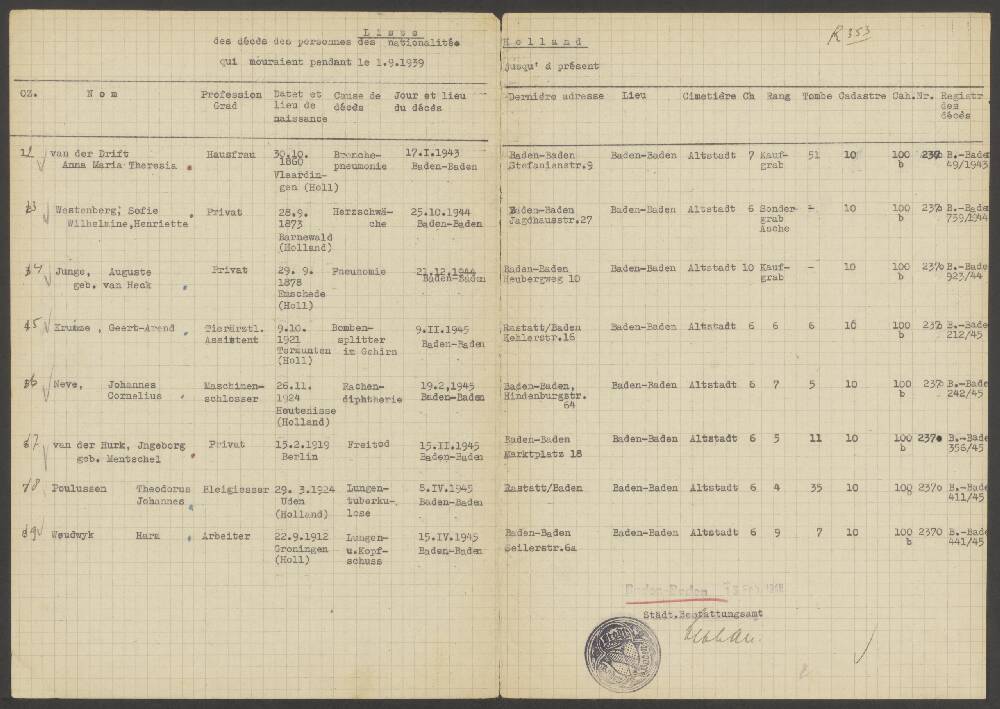 Liste
des décés des personnes des nationalités Holland
qui mouraient pendant le 1.9.1939 jusqu' á présent
R 353
OZ. Nom Profession Grad Datet et lieu de naissance Cause de décés Jour et lieu du décés Derniére adresse Lieu Cimetiére Ch Rang Tombe Cadastre Cah.Nr. Registr des décés
van der Drift Hausfrau 30.10. Bronche- 17.I.1943 Baden-Baden Baden-Baden Altstadt 7 Kauf- 51 10 100 2370 B.-Bade
Anna Maria Theresia 1860 pneumonie Baden-Baden Stefanienstr.9 grab b 49/1943
Vlaardin-
gen (Holl)
Westenberg, Sofie Privat 28.9. Herzschwä- 25.10.1944 Baden-Baden Baden-Baden Altstadt 6 Sonder- - 10 100 2370 B.-Bade
Wilhelmine,Henriette 1873 che Baden-Baden Jagdhausstr.27 grab b 759/1944
Barnewald Asche
(Holland)
Junge, Auguste Privat 29. 9. Pneumomie 21.12.1944 Baden-Baden Baden-Baden Altstadt 10 Kauf- - 10 100 2370 B.-Bade
geb. van Heck 1878 Baden-Baden Heubergweg 10 grab b 923/44
Enschede
(Holl)
Kruize, Geert-Arend Tierärztl. 9.10. Bomben- 9.II.1945 Rastatt/Baden Baden-Baden Altstadt 6 6 6 10 100 2370 B.-Bade
Assistent 1921 splitter Baden-Baden Kehlerstr.16 b 212/45
Termunten im Gehirn
(Holl)
Neve, Johannes Maschinen- 26.11. Rachen- 19.2,1945 Baden-Baden, Baden-Baden Altstadt 6 7 5 10 100 2370 B.-Bade
Cornelius schlosser 1924 diphtherie Baden-Baden Hindenburgstr. b 242/45
Heutenisse 64
(Holland)
van der Hurk, Jngeborg Privat 15.2.1919 Freitod 15.II.1945 Baden-Baden Baden-Baden Altstadt 6 5 11 10 100 2370 B.-Bade
geb. Mentschel Berlin Baden-Baden Marktplatz 18 b 356/45
Poulussen Theodorus Bleigiesser 29. 3.1924 Lungen- 5.IV.1945 Rastatt/Baden Baden-Baden Altstadt 6 4 35 10 100 2370 B.-Bade
Johannes Uden tuberku- Baden-Baden 411/45
(Holland) lose
Woudwyk Harm Arbeiter 22.9.1912 Lungen- 15.IV.1945 Baden-Baden Baden-Baden Altstadt 6 9 7 10 100 2370 B.-Bade
Groningen u.Kopf- Baden-Baden Seilerstr.6a b 441/45
(Holl) schuss
Baden-Baden
Städt.Bestattungsamt